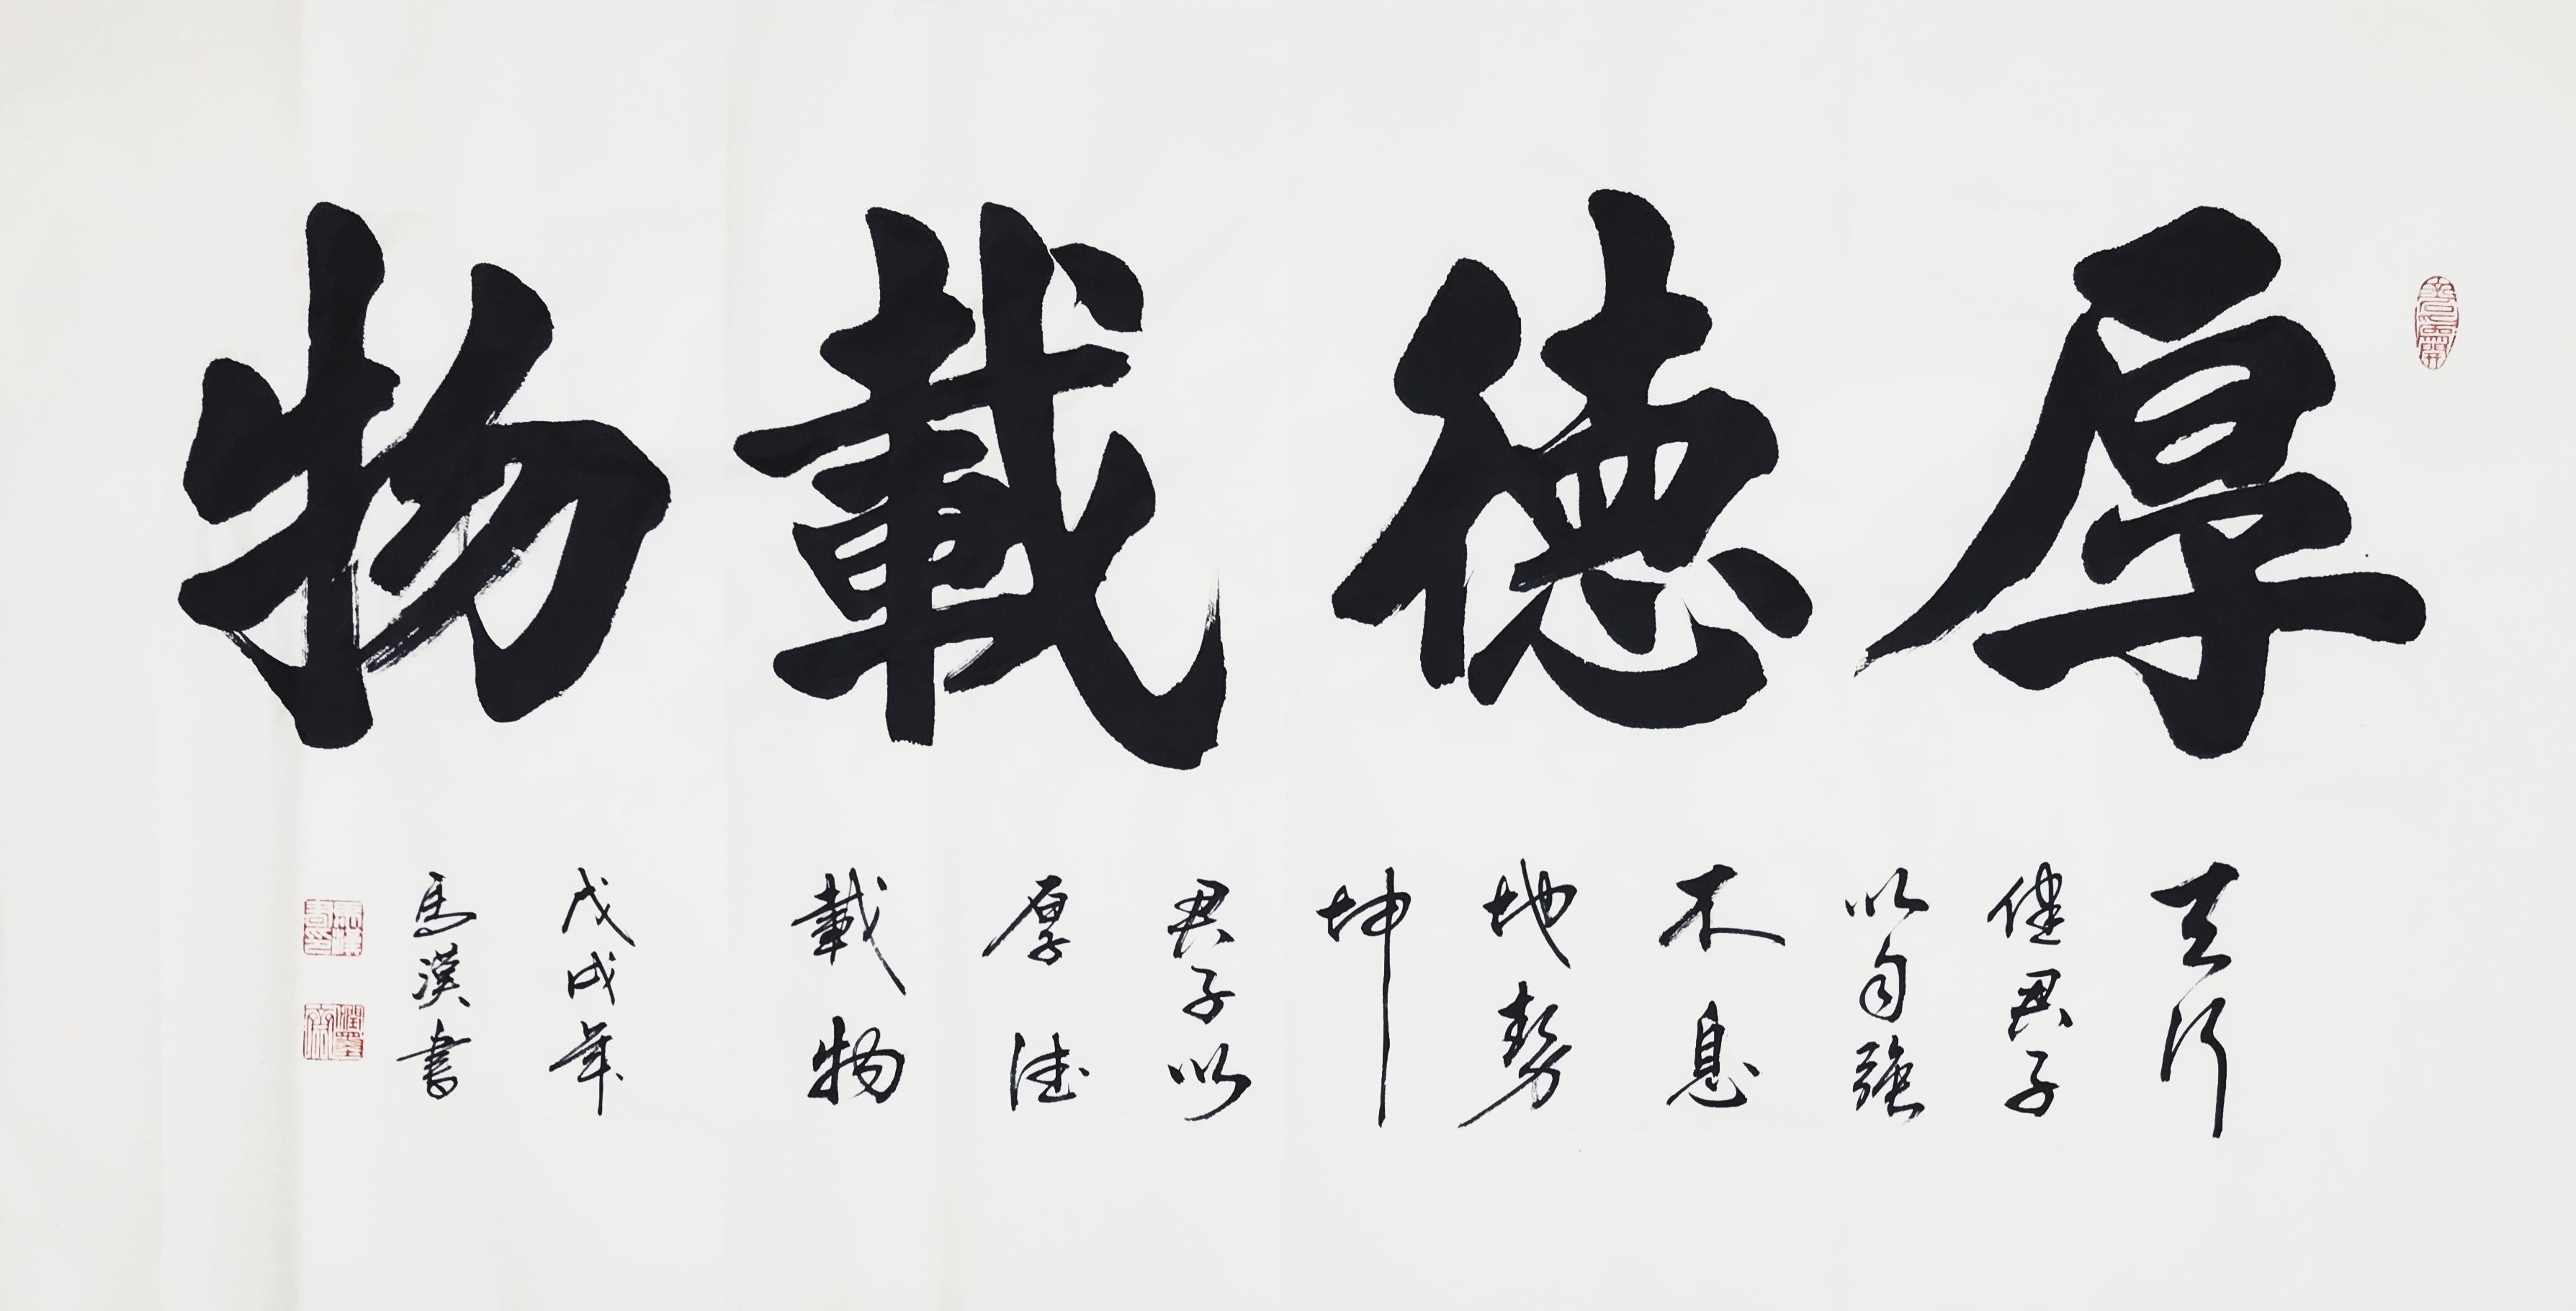 厚德載物
天行
健君子
以自強
不息
地勢
坤
君子以
厚德
載物
戊戌年
馬漢書